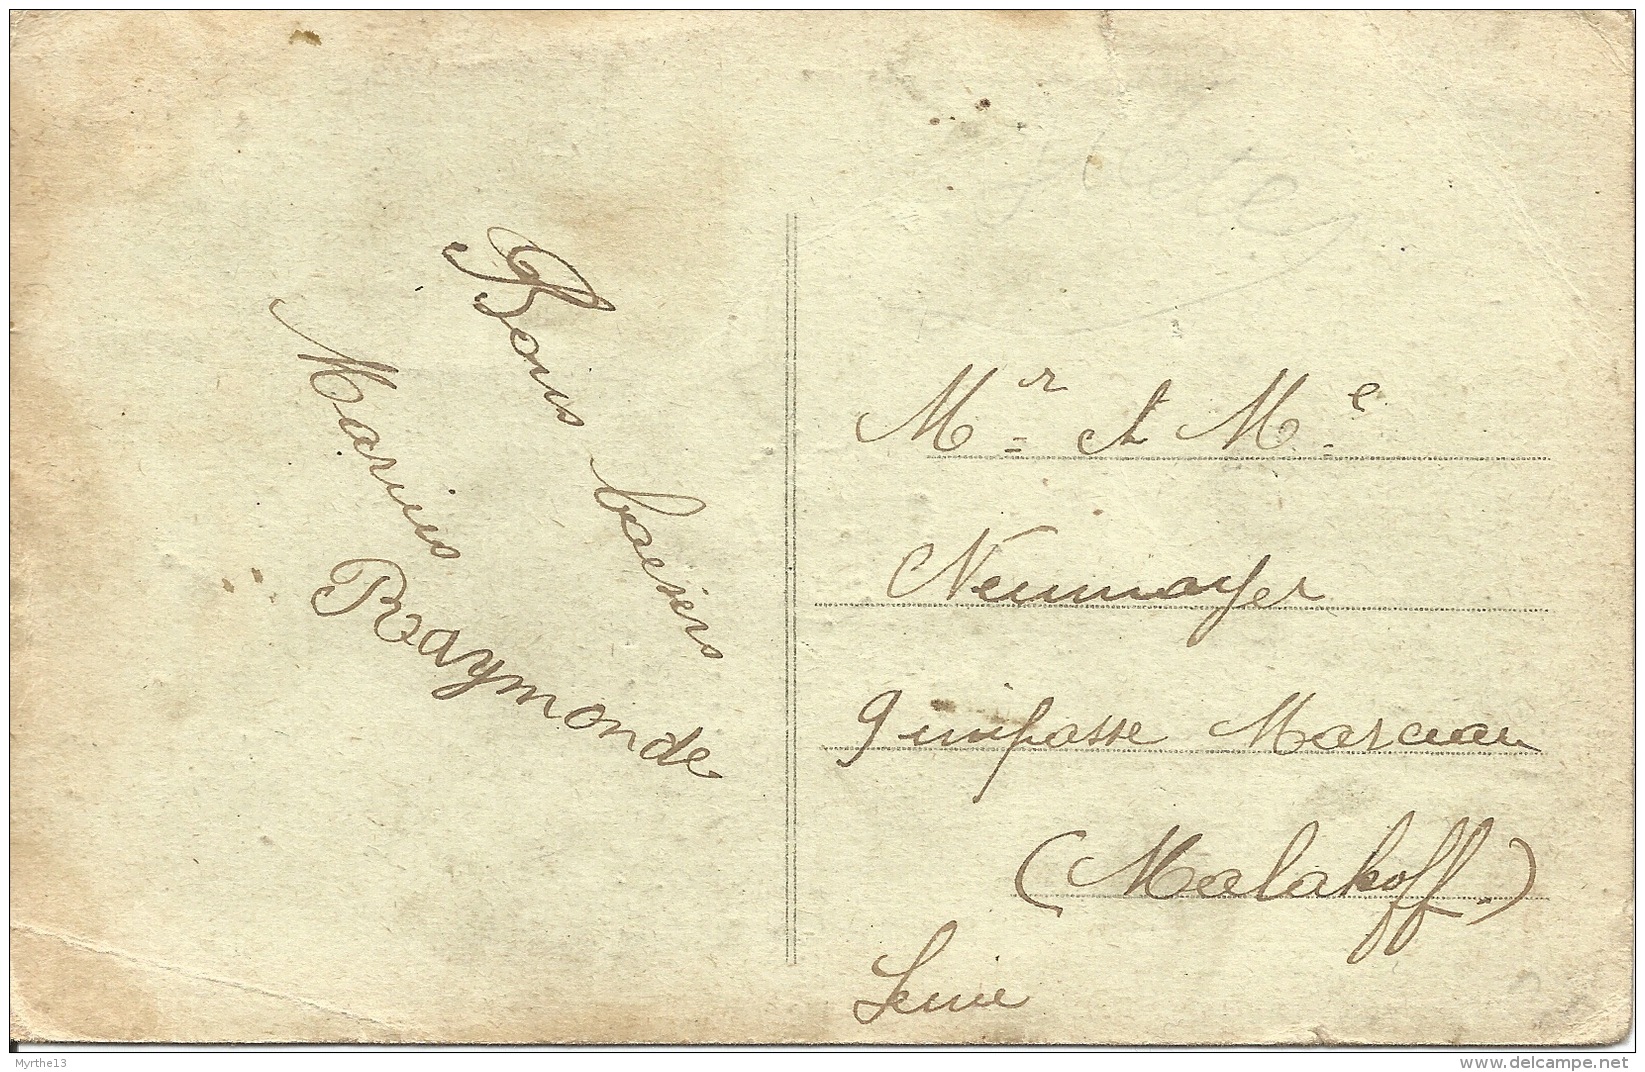 Bons baisers
Marius
Raymonde
Mr et Me
Neumayer
9 impasse Marceau
(Malakoff.)
Seine
Myrthe13
www.delcampe.net